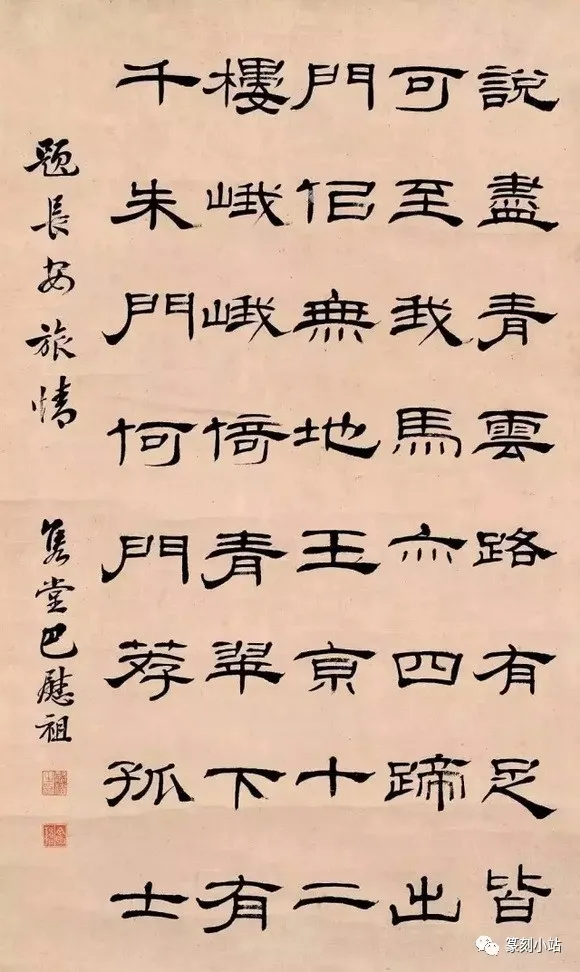 說盡青雲路有足皆
可至我馬亦四蹄出
門似無地玉京十二
樓峨峨倚青翠下有
千朱門何門荐孤士
題長安旅情 雋堂巴慰祖
篆刻小站